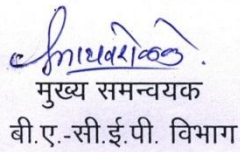 मुख्य समन्वयक
बी.ए.-सी.ई.पी. विभाग